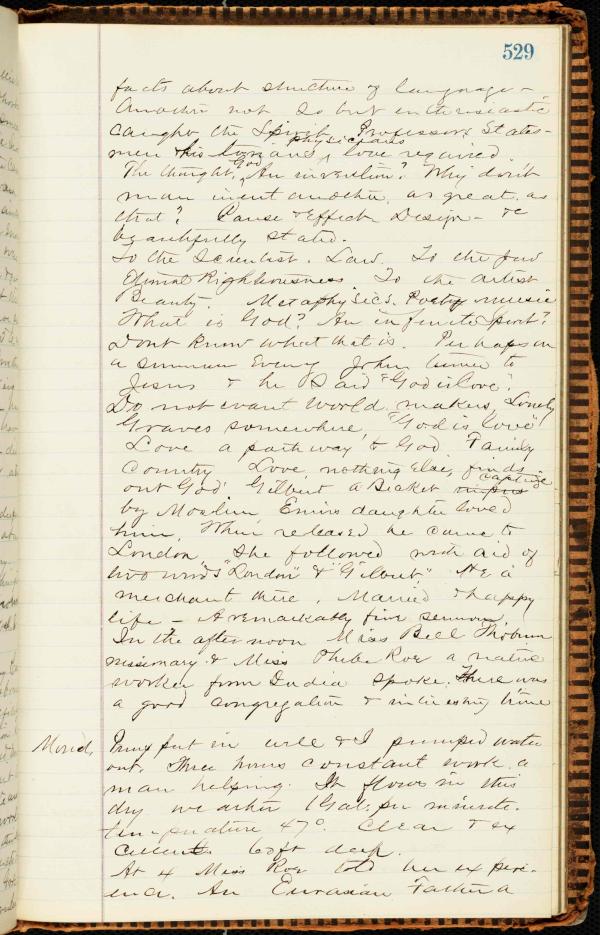 529
facts about structure of language -
Another not so but enthusiastic
caught the Spirit. Professors States-
physicians
men his town and, love required.
God
The thought, An invention? Why don't
man invent another, as great as
that? Cause & Effect. Design - &c
beautifully stated.
To the Scientist. Law. To the Jew
Eternal Righteousness. To the artist
Beauty. Metaphysics. Poetry music
What is God? An infinite Spirit?
Dont know what that is. Perhaps on
a summer Evening John turned to
Jesus & he said "God is love".
Do not want world makers, Lonely
Graves somewhere, "God is love"
Love a pathway to God Family
Country Love nothing Else, finds
out God Gilbert a Becket captive
by Moslem Emirs daughter loved
him. When released he came to
London. She followed with aid of
two words "London" & "Gilbert" He a
merchant there. Married & happy
life - A remarkably fine sermon.
In the afternoon Miss Bell Thoburn
missionary & Miss Phebe Roe a native
worker from India spoke. There was
a good congregation & interesting time
Mond. Pump put in well & I pumped water
out. Three hours constant work a
man helping. It flows in this
dry weather 1 Gal. per minute.
temperature 47°. Clear & ex
cellent 60 ft deep.
At 4 Miss Roe told her experi-
ence. An Eurasian Father a